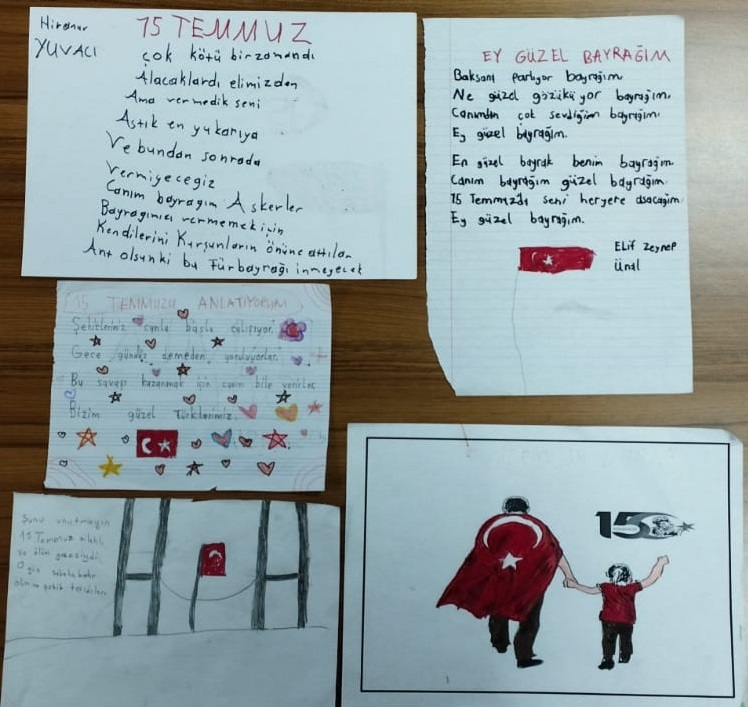 Hiranur
YUVACI
15 TEMMUZ
çok kötü bir zamandı
Alacaklardı elimizden
Ama vermedik seni
Astık en yukarıya
Ve bundan sonrada
Vermiyecegiz
Canım bayragım Askerler
Bayragınıcı vermemek için
Kendilerini Kurşunların önüne attılar
Ant olsunki bu Türbayrağı inmeyecek
EY GÜZEL BAYRAĞIM
Baksana Parlıyor bayrağım
Ne güzel gözüküyor bayrağım.
Canımdan çok sevdiğim bayrağım.
Ey güzel bayrağım.
En güzel bayrak benim bayrağım
Canım bayrağım güzel bayrağım.
15 Temmuzda seni heryere asacağım
Ey güzel bayrağım.
Elif Zeynep
Ünal
15 TEMMUZU ANLATIYORUM
Şehitlerimiz canla başla çalışıyor.
Gece gündüz demeden yoruluyorlar.
Bu savaşı kazanmak için canını bile verirler
Bizim güzel Türklerimiz.
Şunu unutmayın
15 Temmuz silah
ve ölüm gecesiydi
O gün sabaha kadar
15